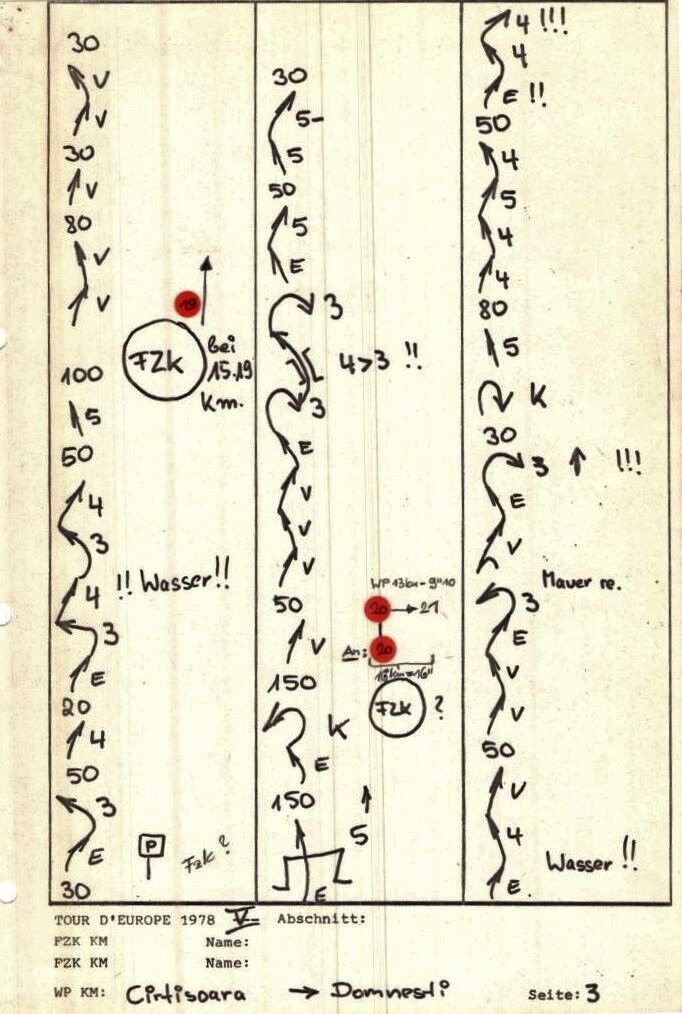 30
V
V
30
V
80
V
V
19
FZK bei
15.19
km.
100
5
50
4
3
!! Wasser!!
4
3
E
20
4
50
3
E
P
Fzk ?
30
30
5-
5
50
5
E
3
4>3 !!
3
E
V
V
V
50
WP 13km - 9"10
20 → 21
An: 20
V
16km=16"
150
FZK ?
K
E
150 ↑
5
E
4 !!!
4
E !!
50
4
5
4
4
80
5
K
30
3 ↑ !!!
E
V
Mauer re.
3
E
V
V
50
V
4
Wasser !!
E.
TOUR D'EUROPE 1978 V-- Abschnitt:
FZK KM Name:
FZK KM Name:
WP KM: Cirtisoara → Domnesti Seite: 3